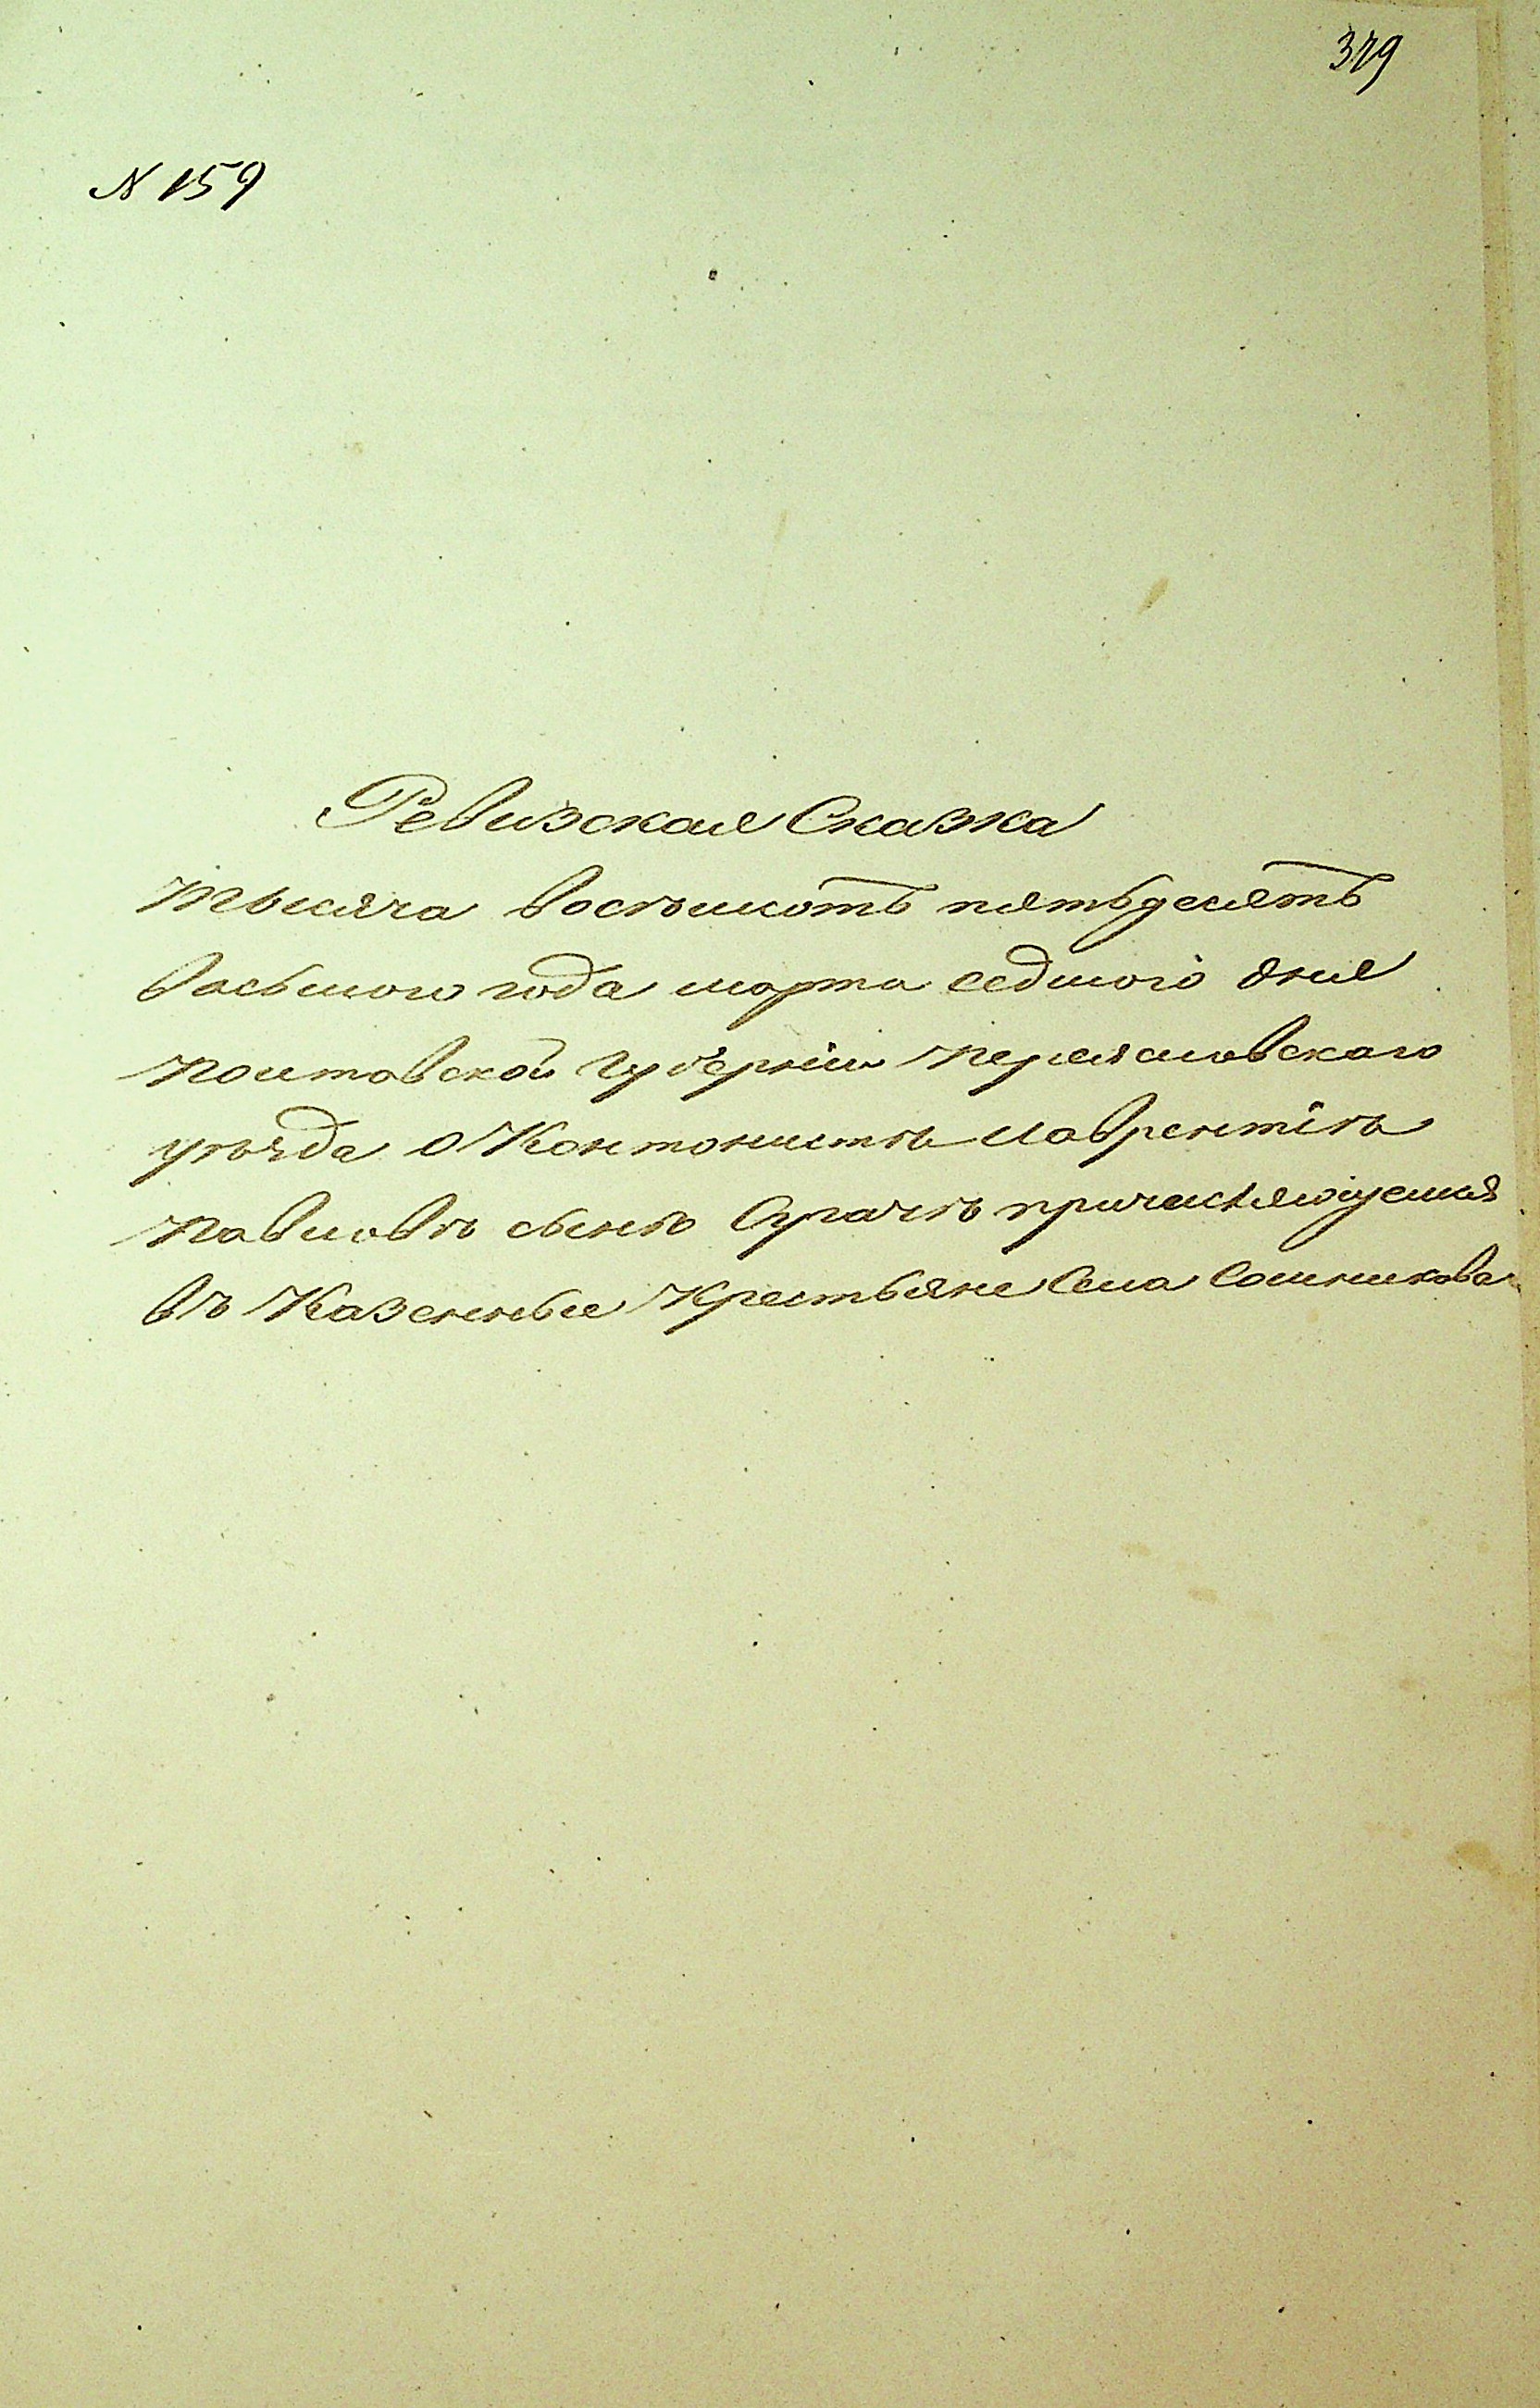 379
N 159
Ревизская Сказка
Тысяча восѣмсотъ пятьдесятъ
восьмого года марта седмого дня
Полтавской губерніи Переясловскаго
уѣзда О Кантонистѣ Лаврентіѣ
Павловѣ сынѣ причисляющемся
въ Казенные Крестьяне Села Сошникова